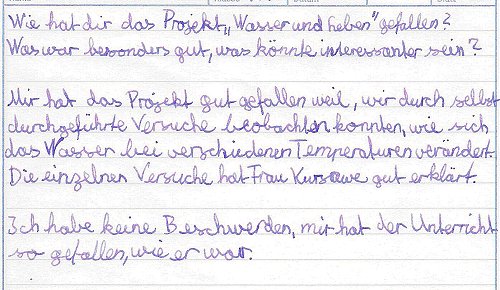 Wie hat dir das Projekt „Wasser und Leben“ gefallen?
Was war besonders gut, was könnte interessanter sein?
Mir hat das Projekt gut gefallen weil, wir durch selbst
durchgeführte Versuche beobachten konnten, wie sich
das Wasser bei verschiedenen Temperaturen verändert.
Die einzelnen Versuche hat Frau Kursawe gut erklärt.
Ich habe keine Beschwerden, mir hat der Unterricht
so gefallen, wie er war.